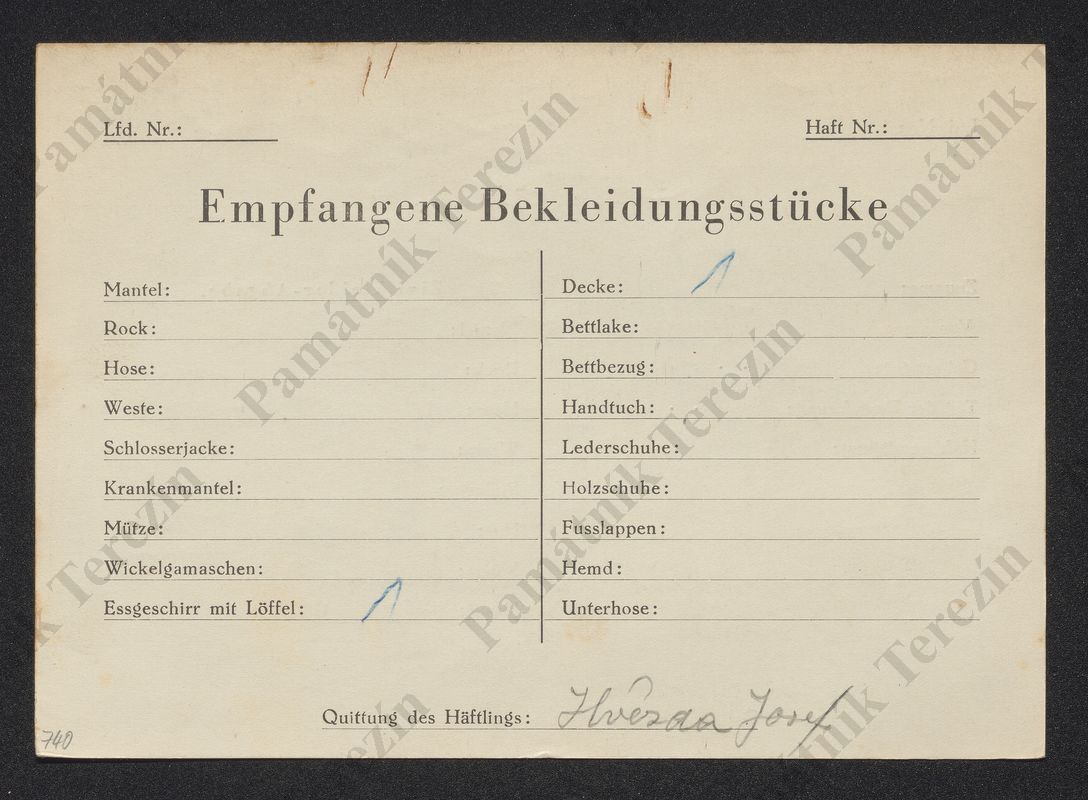 Lfd. Nr.:
Haft Nr.:
Empfangene Bekleidungsstücke
Mantel:
Rock:
Hose:
Weste:
Schlosserjacke:
Krankenmantel:
Mütze:
Wickelgamaschen:
Essgeschirr mit Löffel: 1
Decke: 1
Bettlake:
Bettbezug:
Handtuch:
Lederschuhe:
Holzschuhe:
Fusslappen:
Hemd:
Unterhose:
Quittung des Häftlings: Hvězda Josef
740
Památník Terezín
Památník Terezín
Památník Terezín
Památník Terezín